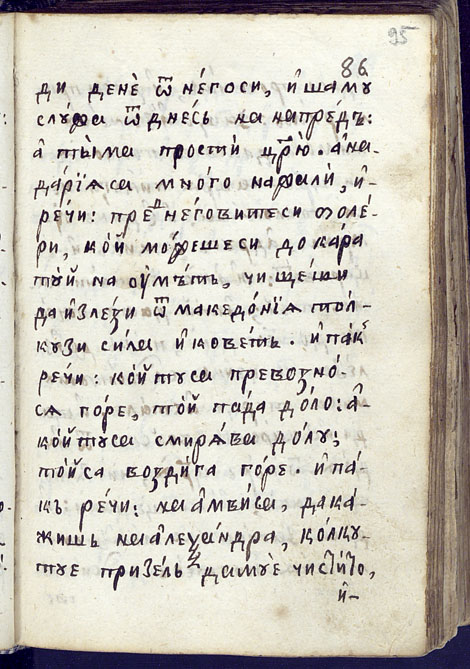 95
86
ди денѐ ѿ не́госи, и҆ шаму
слꙋга ѿ дне́сь на напре́дъ:
а҆ ты́ ма прости̏ цр҃ю. а҆ на
да́рїѧса мно́го нажали̏, и҆-
ре́чи: преⷣ не́говитеси ѳоле́-
ри, ко́й мо́жешеси до ка́ра
ту́й на оу҆́мъть, чи ще́ши
да и҆зле́зи ѿ македо́нїѧ то́л-
кузи си́ла и҆ кове́ть. и҆ па́къ
ре́чи: ко́й туса превозно́-
сѧ го́ре, то́й па́да до́ло: а҆-
ко́й туса смирѧ́ва до́лу;
то́йса воздига го́ре. и҆ па́-
къ ре́чи: на а҆мви́са, да ка́-
жишь на а҆леѯа́ндра, ко́лку-
туе призе́лъ да муѐ чисти́то,
и҆-